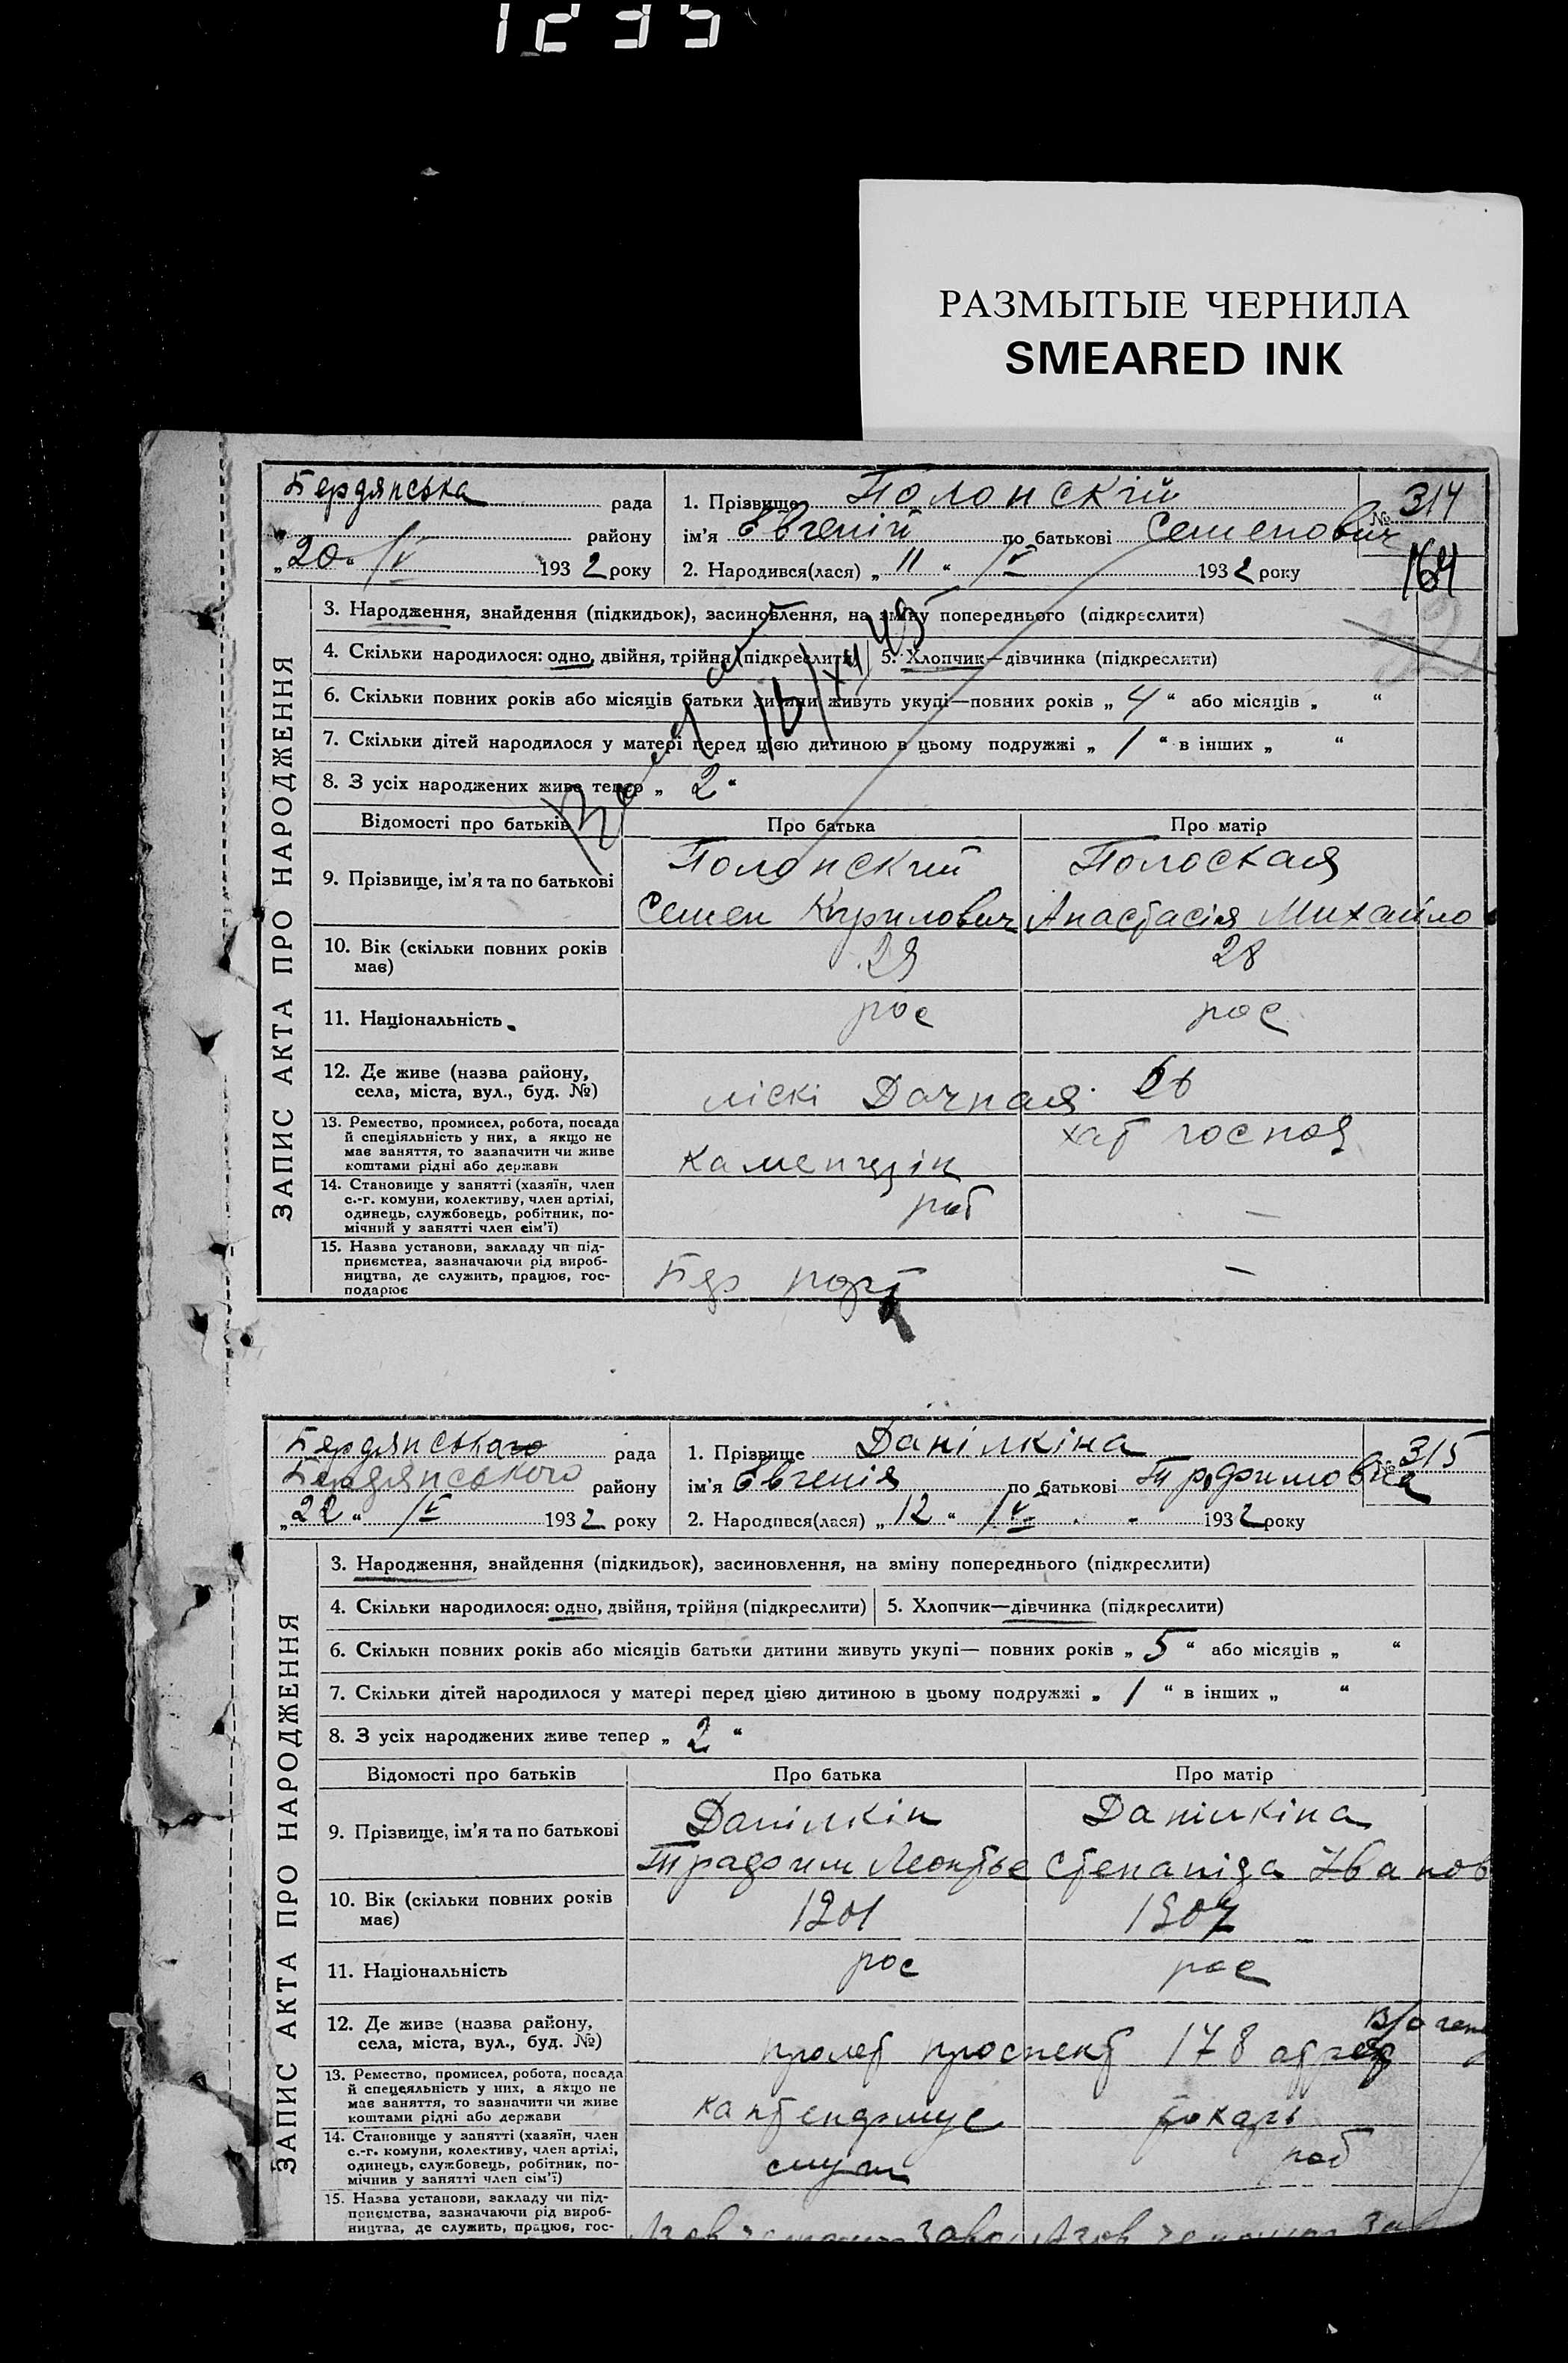 1235
РАЗМЫТЫЕ ЧЕРНИЛА
SMEARED INK
Бердянська рада
району
„20“ IV 1932 року
1. Прізвище Полонскій
№ 314
ім’я Євгеній по батькові Семенович
2. Народився(лася) „11“ IV 1932 року
164
ЗАПИС АКТА ПРО НАРОДЖЕННЯ
3. Народження, знайдення (підкидьок), засиновлення, на зміну попереднього (підкреслити)
4. Скільки народилося: одно, двійня, трійня (підкреслити) 5. Хлопчик—дівчинка (підкреслити)
6. Скільки повних років або місяців батьки дитини живуть укупі—повних років „4“ або місяців „ “
7. Скільки дітей народилося у матері перед цією дитиною в цьому подружжі „1“ в інших „ “
8. З усіх народжених живе тепер „2“
16/XII 45
Відомості про батьків Про батька Про матір
9. Прізвище, ім’я та по батькові
Полонский
Семен Кирилович
Полоская
Анастасія Михайло
10. Вік (скільки повних років має)
29 28
11. Національність
рос рос
12. Де живе (назва району, села, міста, вул., буд. №)
ліскі Дачная 66
13. Ремество, промисел, робота, посада
й спеціяльність у них, а якщо не
має заняття, то зазначити чи живе
коштами рідні або держави
Каменщік
хат госпоd
14. Становище у занятті (хазяїн, член
с.-г. комуни, колективу, член артілі,
одинець, службовець, робітник, по-
мічний у занятті член сім’ї)
роб —
15. Назва установи, закладу чи під-
приємства, зазначаючи рід вироб-
ництва, де служить, працює, гос-
подарює
Бер порт —
Бердянського рада
Бердянського району
„22“ IV 1932 року
1. Прізвище Данілкіна
№ 315
ім’я Євгенія по батькові Трофимовна
2. Народився(лася) „12“ IV 1932 року
ЗАПИС АКТА ПРО НАРОДЖЕННЯ
3. Народження, знайдення (підкидьок), засиновлення, на зміну попереднього (підкреслити)
4. Скільки народилося: одно, двійня, трійня (підкреслити) 5. Хлопчик—дівчинка (підкреслити)
6. Скільки повних років або місяців батьки дитини живуть укупі— повних років „5“ або місяців „ “
7. Скільки дітей народилося у матері перед цією дитиною в цьому подружжі „1“ в інших „ “
8. З усіх народжених живе тепер „2“
Відомості про батьків Про батька Про матір
9. Прізвище, ім’я та по батькові
Данілкін
Трафим Леонтье
Данілкіна
Степаніда Іванов
10. Вік (скільки повних років має)
1901 1907
11. Національність
рос рос
12. Де живе (назва району, села, міста, вул., буд. №)
пролет проспект 178
13. Ремество, промисел, робота, посада
й спеціяльність у них, а якщо не
має заняття, то зазначити чи живе
коштами рідні або держави
токарь
14. Становище у занятті (хазяїн, член
с.-г. комуни, колективу, член артілі,
одинець, службовець, робітник, по-
мічний у занятті член сім’ї)
роб
15. Назва установи, закладу чи під-
приємства, зазначаючи рід вироб-
ництва, де служить, працює, гос-